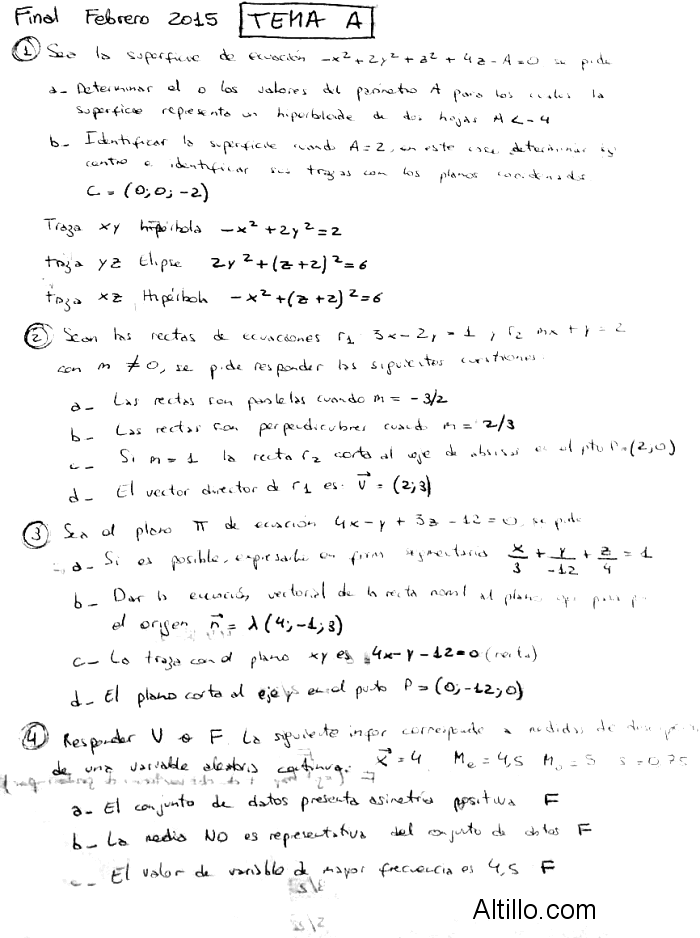 Final Febrero 2015 TEMA A
① Sea la superficie de ecuación -x² + 2y² + z² + 4z - A = 0 se pide
a- Determinar el o los valores del parámetro A para los cuales la
superficie representa un hiperboloide de dos hojas A < -4
b- Identificar la superficie cuando A = 2, en este caso determinar
centro e identificar sus trazas con los planos coordenados
C = (0; 0; -2)
Traza xy hipérbola -x² + 2y² = 2
traza yz Elipse 2y² + (z + 2)² = 6
traza xz Hipérbola -x² + (z + 2)² = 6
② Sean las rectas de ecuaciones r1 3x - 2y = 1 y r2 mx + y = 2
con m ≠ 0, se pide responder las siguientes cuestiones
a- Las rectas son paralelas cuando m = -3/2
b- Las rectas son perpendiculares cuando m = 2/3
c- Si m = 1 la recta r2 corta al eje de abscisas en el pto P=(2;0)
d- El vector director de r1 es v = (2; 3)
③ Sea el plano π de ecuación 4x - y + 3z - 12 = 0, se pide
a- Si es posible, expresarlo en forma segmentaria x/3 + y/-12 + z/4 = 1
b- Dar la ecuación vectorial de la recta normal al plano que pasa
el origen n = λ (4; -1; 3)
c- La traza con el plano xy es 4x - y - 12 = 0 (recta)
d- El plano corta al eje y en el punto P = (0; -12; 0)
④ Responder V o F La siguiente infor corresponde a medidas de
de una variable aleatoria continua. x = 4 Me = 4,5 Mo = 5 s = 0.75
a- El conjunto de datos presenta asimetría positiva F
b- La media NO es representativa del conjunto de datos F
c- El valor de variable de mayor frecuencia es 4,5 F
Altillo.com